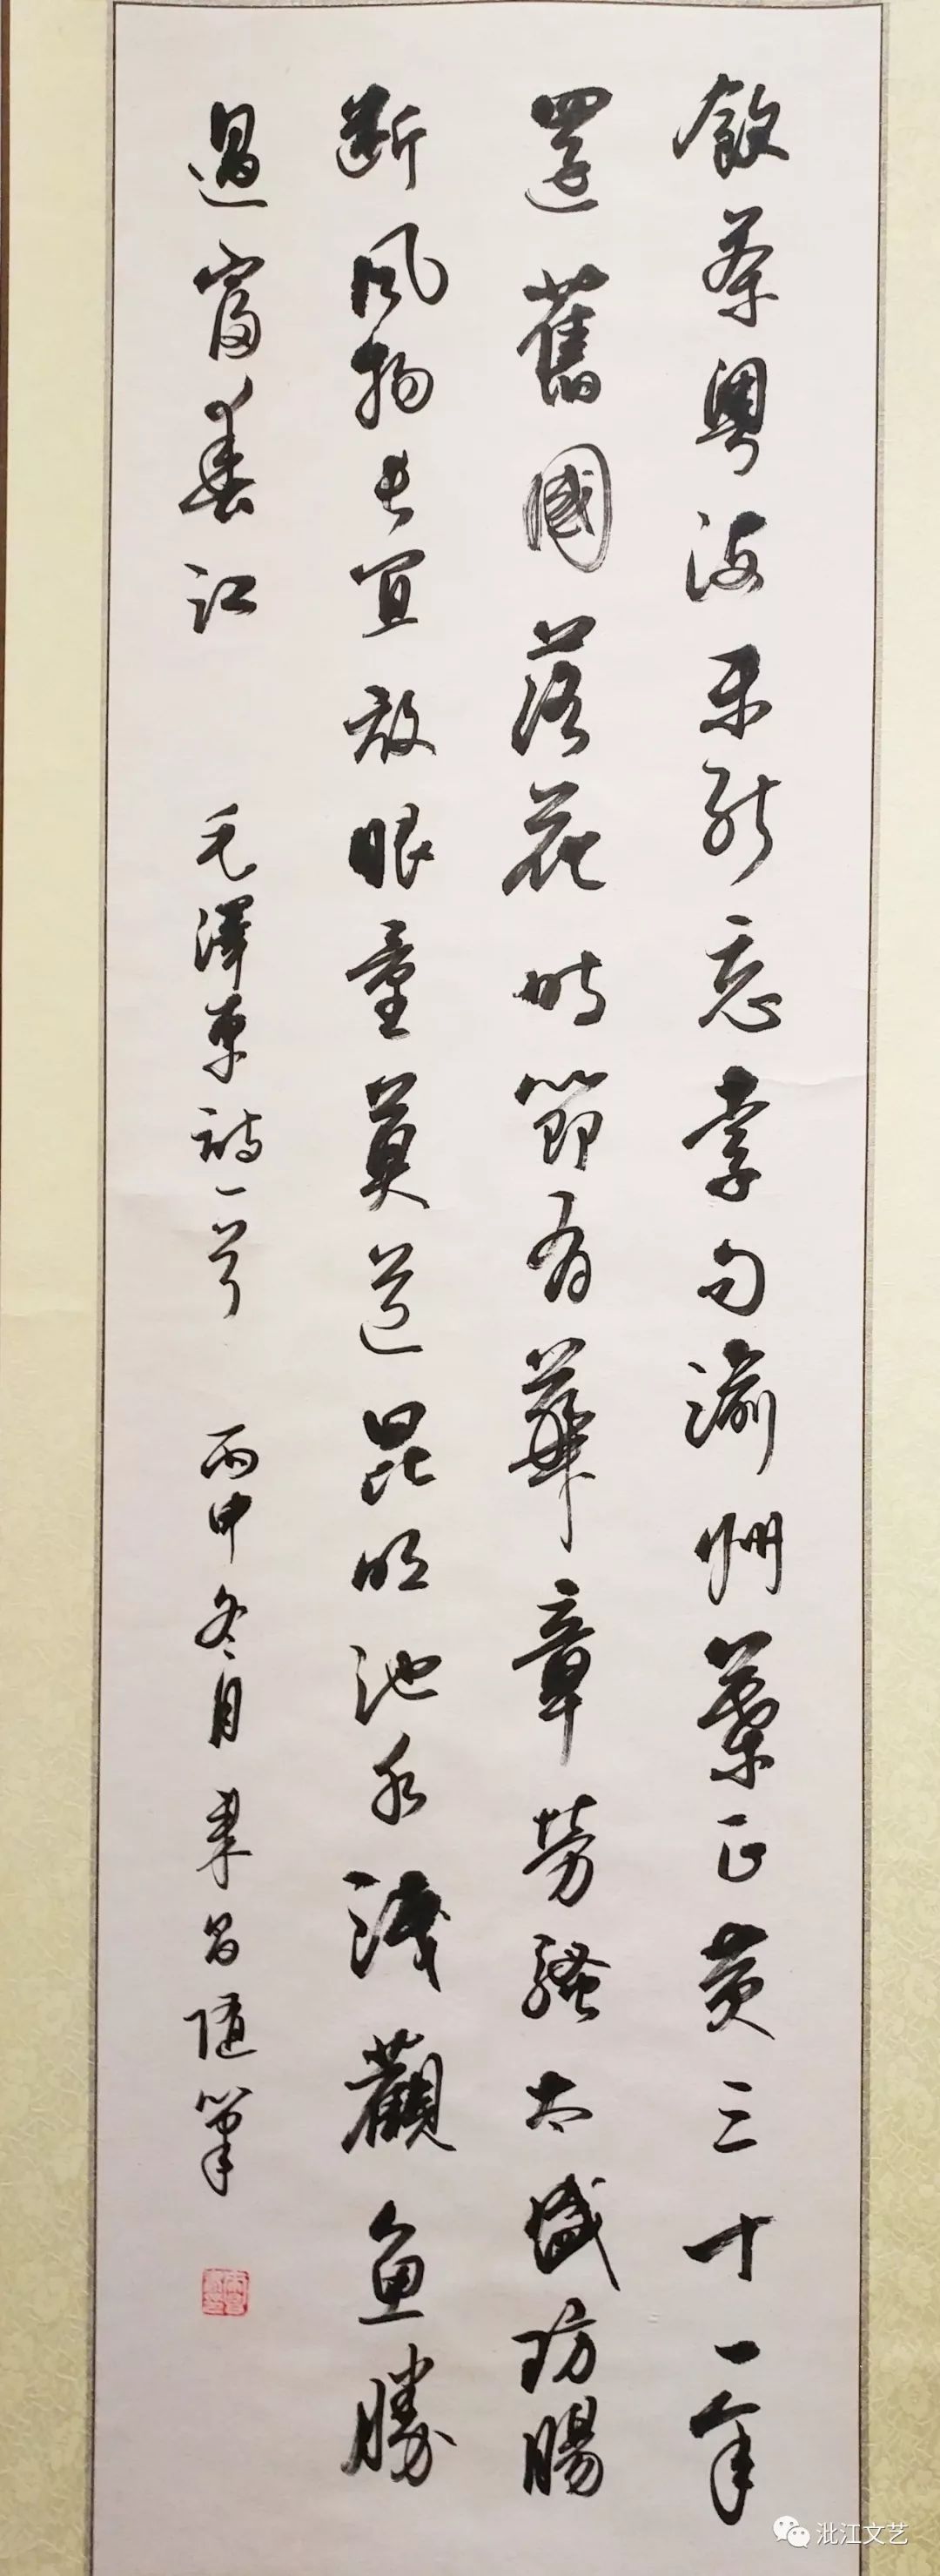 飲茶粵海未能忘索句渝州葉正黃三十一年
還舊國落花時節有華章勞騷太盛防腸
斷風物長宜放眼量莫道昆明池水淺觀魚勝
過富春江 毛澤東詩一首 丙申冬月 昌隨筆
沘江文艺